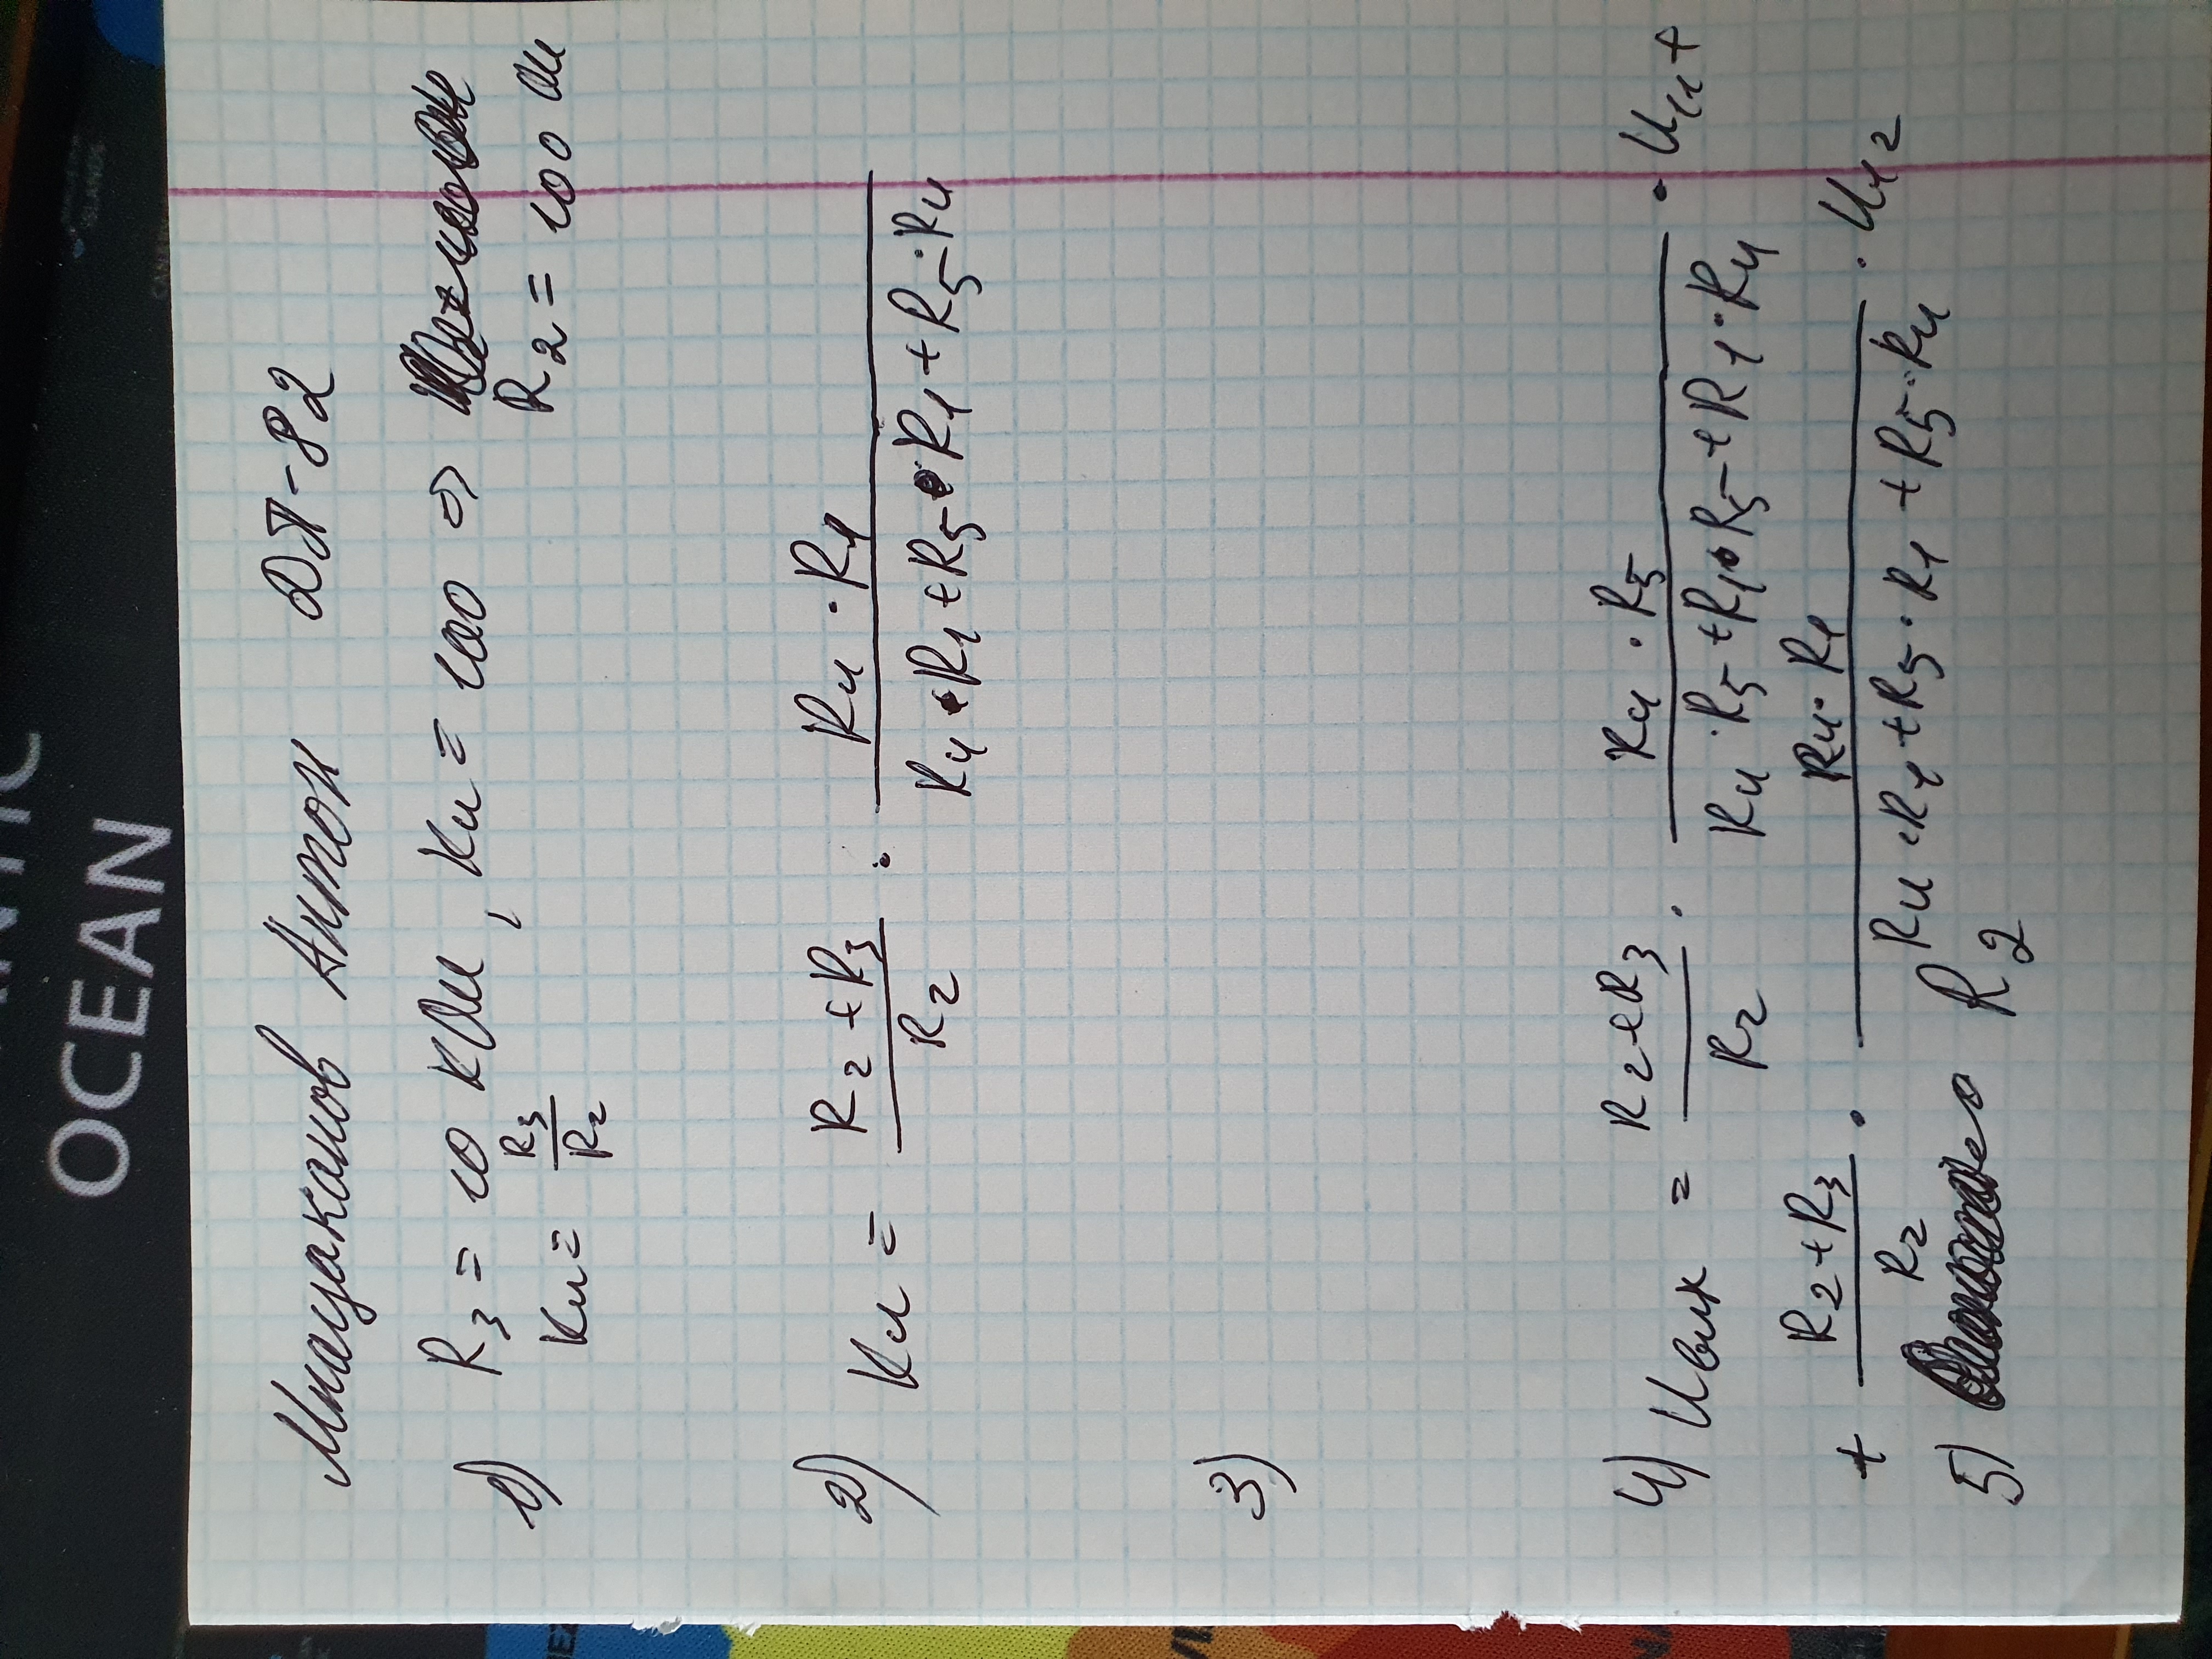 OCEAN
ISLANDS
Мнацаканов Антон ДП-82
1) R₃ = 10 кОм, Kи = 100 ⇒
Kи = R₃/R₂
R₂ = 100 Ом
2) Kи = (R₂+R₃)/R₂ · (R₄·R₁)/(R₄·R₁+R₅·R₁+R₅·R₄)
3)
4) Uвих = (R₂+R₃)/R₂ · (R₄·R₅)/(R₄·R₅+R₁·R₅+R₁·R₄) · U₁₁+
+ (R₂+R₃)/R₂ · (R₄·R₁)/(R₄·R₁+R₅·R₁+R₅·R₄) · U₁₂
5) R₂